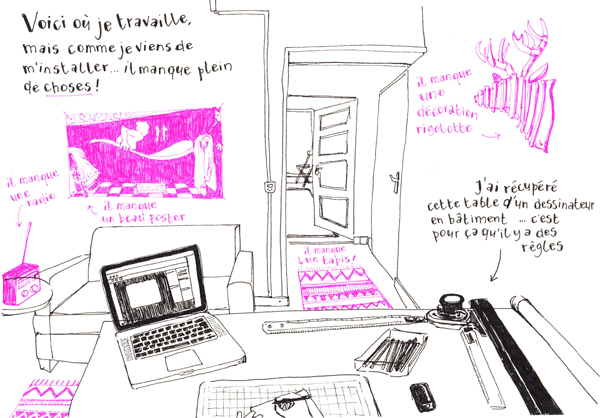 Voici où je travaille,
mais comme je viens de
m'installer... il manque plein
de choses !
il manque
une
décoration
rigolotte
il manque
une
radio
il manque
un beau poster
il manque
un tapis !
J'ai récupéré
cette table d'un dessinateur
en bâtiment ... c'est
pour ça qu'il y a des
règles